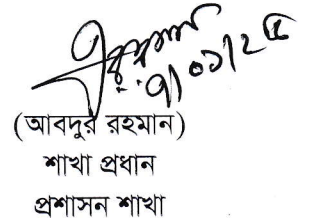 ৭/০১/২৫
(আবদুর রহমান)
শাখা প্রধান
প্রশাসন শাখা